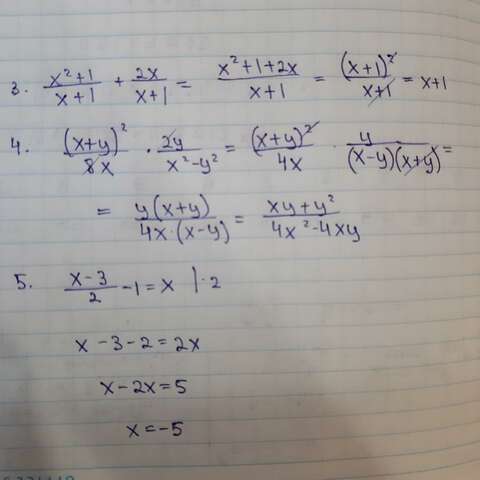 3. (x²+1)/(x+1) + 2x/(x+1) = (x²+1+2x)/(x+1) = (x+1)²/(x+1) = x+1
4. (x+y)²/8x · 2y/(x²-y²) = (x+y)²/4x · y/((x-y)(x+y)) =
= y(x+y)/(4x·(x-y)) = (xy+y²)/(4x²-4xy)
5. (x-3)/2 -1 = x |·2
x -3-2 = 2x
x-2x = 5
x = -5